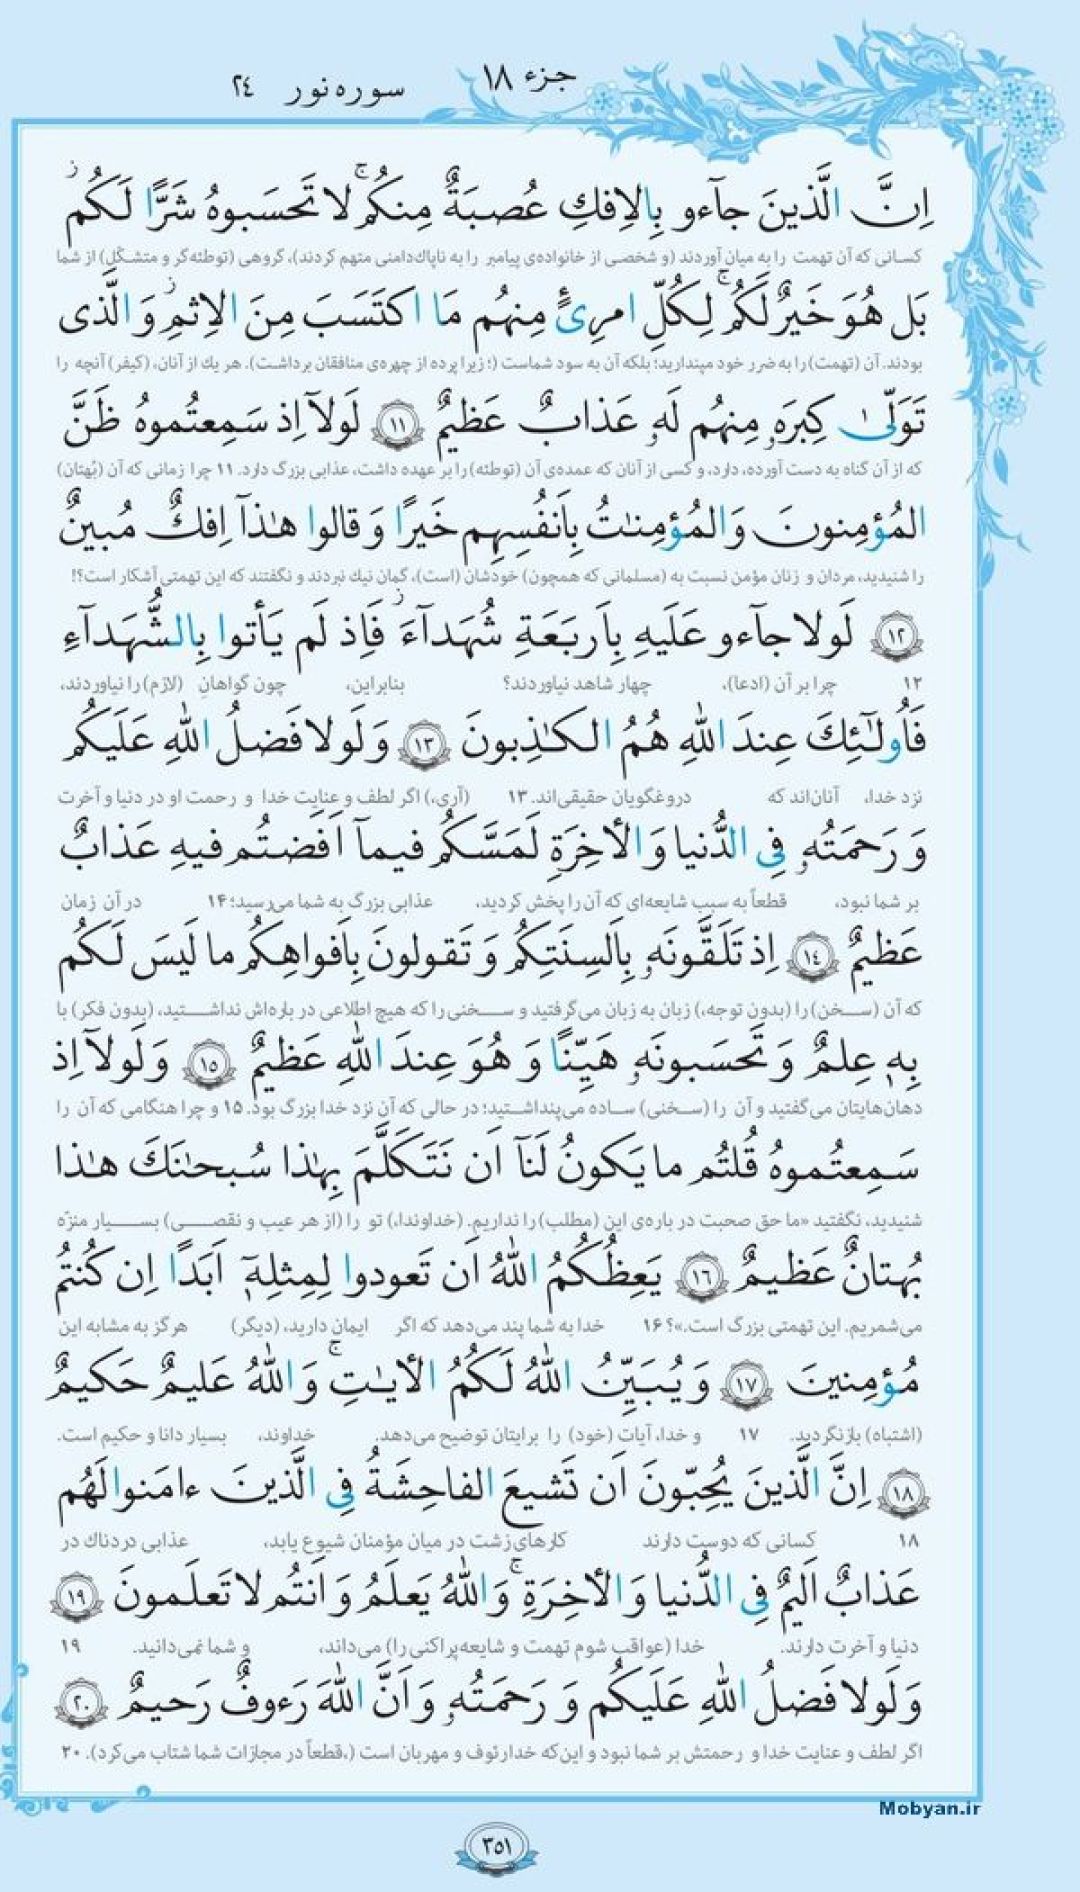 جزء ۱۸
سوره نور ۲٤
اِنَّ الَّذینَ جآءو بِالاِفكِ عُصبَةٌ مِنكُم ۚ لا تَحسَبوهُ شَرًّا لَكُم ز
کسانی که آن تهمت را به میان آوردند (و شخصی از خانواده‌ی پیامبر را به ناپاك‌دامنی متهم کردند)، گروهی (توطئه‌گر و متشکّل) از شما
بَل هُوَ خَیرٌ لَكُم ۚ لِكُلِّ امرِئٍ مِنهُم مَا اكتَسَبَ مِنَ الاِثمِ ز وَ الَّذی
بودند. آن (تهمت) را به ضرر خود مپندارید؛ بلکه آن به سود شماست (؛ زیرا پرده از چهره‌ی منافقان برداشت). هر یك از آنان، (کیفر) آنچه را
تَوَلّىٰ كِبرَهٗ مِنهُم لَهٗ عَذابٌ عَظیمٌ ۱۱ لَولآ اِذ سَمِعتُموهُ ظَنَّ
که از آن گناه به دست آورده، دارد، و کسی از آنان که عمده‌ی آن (توطئه) را بر عهده داشت، عذابی بزرگ دارد. ۱۱ چرا زمانی که آن (بُهتان)
المُؤمِنونَ وَ المُؤمِنٰتُ بِاَنفُسِهِم خَیرًا وَ قالوا هٰذآ اِفكٌ مُبینٌ
را شنیدید، مردان و زنان مؤمن نسبت به (مسلمانی که همچون) خودشان (است)، گمان نیك نبردند و نگفتند که این تهمتی آشکار است؟!
۱۲ لَولا جآءو عَلَیهِ بِاَربَعَةِ شُهَدآءَ ز فَاِذ لَم یَأتوا بِالشُّهَدآءِ
۱۲ چرا بر آن (ادعا)، چهار شاهد نیاوردند؟ بنابراین، چون گواهانِ (لازم) را نیاوردند،
فَاُولٰٓئِكَ عِندَ اللهِ هُمُ الكٰذِبونَ ۱۳ وَ لَولا فَضلُ اللهِ عَلَیكُم
نزد خدا، آنان‌اند که دروغگویان حقیقی‌اند. ۱۳ (آری،) اگر لطف و عنایت خدا و رحمت او در دنیا و آخرت
وَ رَحمَتُهٗ فِی الدُّنیا وَ الأخِرَةِ لَمَسَّكُم فیمآ اَفَضتُم فیهِ عَذابٌ
بر شما نبود، قطعاً به سبب شایعه‌ای که آن را پخش کردید، عذابی بزرگ به شما می‌رسید؛ ۱۴ در آن زمان
عَظیمٌ ۱٤ اِذ تَلَقَّونَهٗ بِاَلسِنَتِكُم وَ تَقولونَ بِاَفواهِكُم ما لَیسَ لَكُم
که آن (سخن) را (بدون توجه،) زبان به زبان می‌گرفتید و سخنی را که هیچ اطلاعی در باره‌اش نداشتید، (بدون فکر) با
بِهٖ عِلمٌ وَ تَحسَبونَهٗ هَیِّنًا وَ هُوَ عِندَ اللهِ عَظیمٌ ۱۵ وَ لَولآ اِذ
دهان‌هایتان می‌گفتید و آن را (سخنی) ساده می‌پنداشتید؛ در حالی که آن نزد خدا بزرگ بود. ۱۵ و چرا هنگامی که آن را
سَمِعتُموهُ قُلتُم ما یَكونُ لَنآ اَن نَتَكَلَّمَ بِهٰذا سُبحٰنَكَ هٰذا
شنیدید، نگفتید «ما حق صحبت در باره‌ی این (مطلب) را نداریم. (خداوندا،) تو را (از هر عیب و نقصی) بسیار منزّه
بُهتانٌ عَظیمٌ ۱٦ یَعِظُكُمُ اللهُ اَن تَعودوا لِمِثلِهٖٓ اَبَدًا اِن كُنتُم
می‌شمریم. این تهمتی بزرگ است.»؟ ۱۶ خدا به شما پند می‌دهد که اگر ایمان دارید، (دیگر) هرگز به مشابه این
مُؤمِنینَ ۱۷ وَ یُبَیِّنُ اللهُ لَكُمُ الأیٰتِ ۚ وَ اللهُ عَلیمٌ حَكیمٌ
(اشتباه) بازنگردید. ۱۷ و خدا، آیات (خود) را برایتان توضیح می‌دهد. خداوند، بسیار دانا و حکیم است.
۱۸ اِنَّ الَّذینَ یُحِبّونَ اَن تَشیعَ الفاحِشَةُ فِی الَّذینَ ءامَنوا لَهُم
۱۸ کسانی که دوست دارند کارهای زشت در میان مؤمنان شیوع یابد، عذابی دردناك در
عَذابٌ اَلیمٌ فِی الدُّنیا وَ الأخِرَةِ ۚ وَ اللهُ یَعلَمُ وَ اَنتُم لا تَعلَمونَ ۱۹
دنیا و آخرت دارند. خدا (عواقب شوم تهمت و شایعه‌پراکنی را) می‌داند، و شما نمی‌دانید. ۱۹
وَ لَولا فَضلُ اللهِ عَلَیكُم وَ رَحمَتُهٗ وَ اَنَّ اللهَ رَءوفٌ رَحیمٌ ۲۰
اگر لطف و عنایت خدا و رحمتش بر شما نبود و این‌که خدا رئوف و مهربان است (،قطعاً در مجازات شما شتاب می‌کرد). ۲۰
Mobyan.ir
۳۵۱